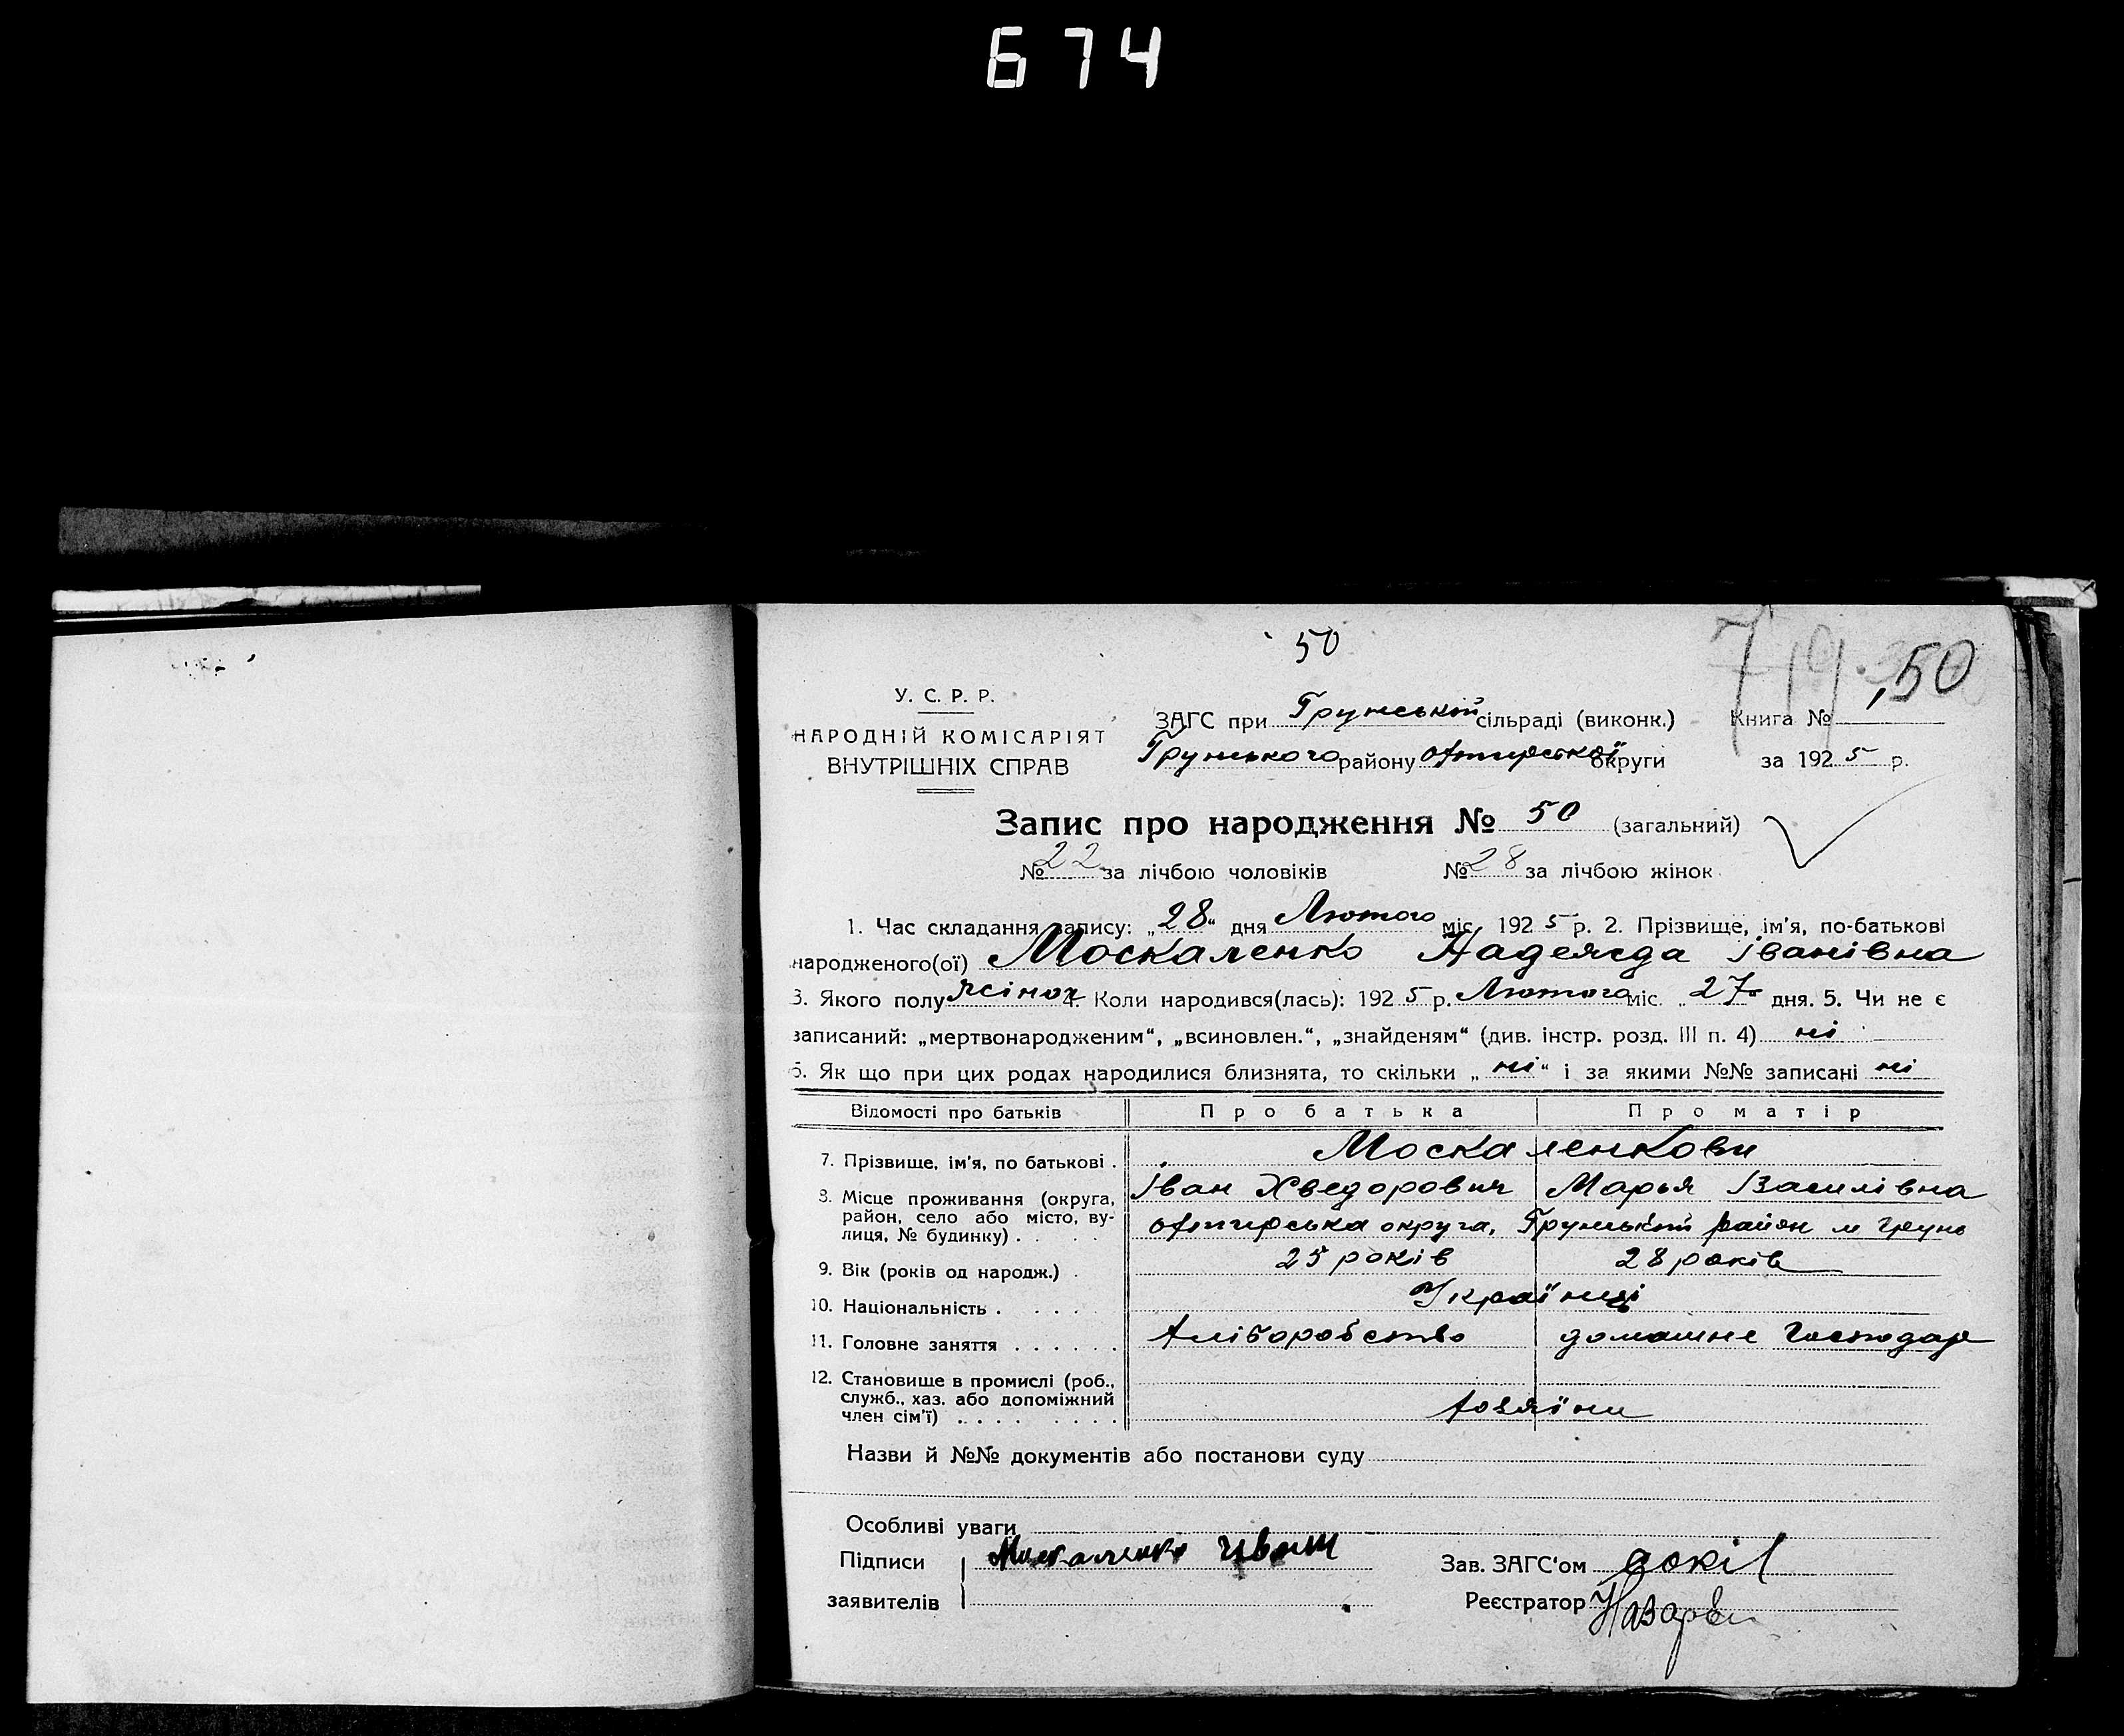 674
50
719.
50
У. С. Р. Р.
НАРОДНІЙ КОМІСАРІЯТ
ВНУТРІШНІХ СПРАВ
ЗАГС при Грунській сільраді (виконк.) Книга №
Грунського району Охтирської округи за 1925 р.
Запис про народження № 50 (загальний)
№ 22 за лічбою чоловіків № 28 за лічбою жінок
1. Час складання запису: „28“ дня Лютого міс. 1925 р. 2. Прізвище, ім'я, по-батькові
народженого(ої) Москаленко Надежда Іванівна
3. Якого полу жіноч 4. Коли народився(лась): 1925 р. Лютого міс. 27 дня. 5. Чи не є
записаний: „мертвонародженим“, „всиновлен.“, „знайденям“ (див. інстр. розд. III п. 4) ні
6. Як що при цих родах народилися близнята, то скільки „ні“ і за якими №№ записані ні
Відомості про батьків Про батька Про матір
7. Прізвище, ім'я, по батькові . Москаленкови
Іван Хведорович Марья Василівна
8. Місце проживання (округа, район, село або місто, вулиця, № будинку) . Охтирська округа, Грунський район м Грунь
9. Вік (років од народж.) . 25 років 28 років
10. Національність . . . . . Українці
11. Головне заняття . . . . . . Хліборобство домашнє господар
12. Становище в промислі (роб., служб., хаз. або допоміжний член сім'ї) . . . . . . . . Хозяїни
Назви й №№ документів або постанови суду
Особливі уваги
Підписи Москаленко Иван Зав. ЗАГС'ом
заявителів Реєстратор